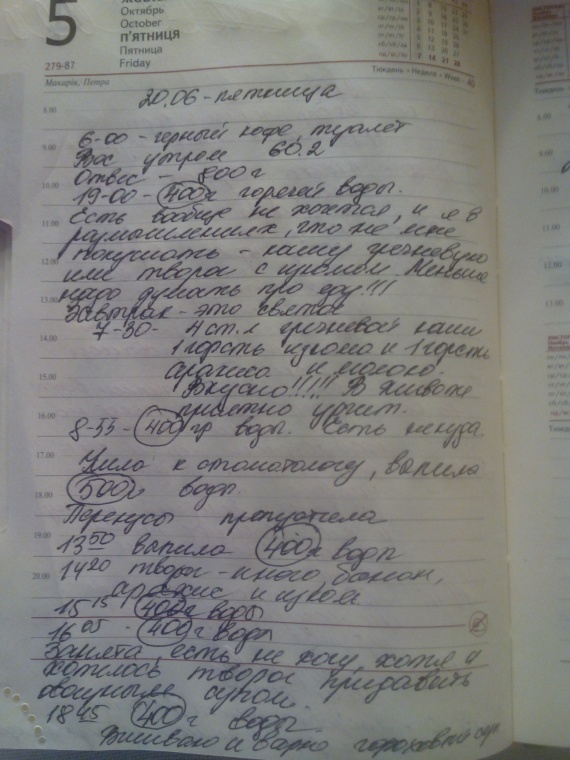 5
Октябрь
October
п'ятниця
Пятница
Friday
279-87
Тиждень • Неделя • Week 40
Макарів, Петра
20.06 - пятница
8.00
6-00 - черный кофе, туалет
Вес утром 60.2
9.00
Отвес - 800г
10.00
19-00 - 400г горячей воды.
Есть вообще не хочется, и я в
размышлениях, что же мне
11.00
покушать - кашу гречневую
12.00
или творог с изюмом. Меньше
надо думать про еду!!!
13.00
Завтрак - это святое
7-30 - 4 ст.л гречневой каши
14.00
1 горсть изюма и 1 горсть
арахиса и молоко.
15.00
Вкусно!!!!!! В животе
приятно урчит.
16.00
8-55 - 400 гр воды. Есть некуда
17.00
Ушла к стоматологу, выпила
18.00
500г воды.
Перекусы пропустила
19.00
13 50 выпила 400г воды
14 20 творог - много, банан,
20.00
арахис и изюм
15 15 400г воды
16 05 - 400г воды
Занята есть не хочу, хотя и
хотелось творог придавить
овощным супом.
18 45 400 г воды.
Вышиваю и варю гороховый суп